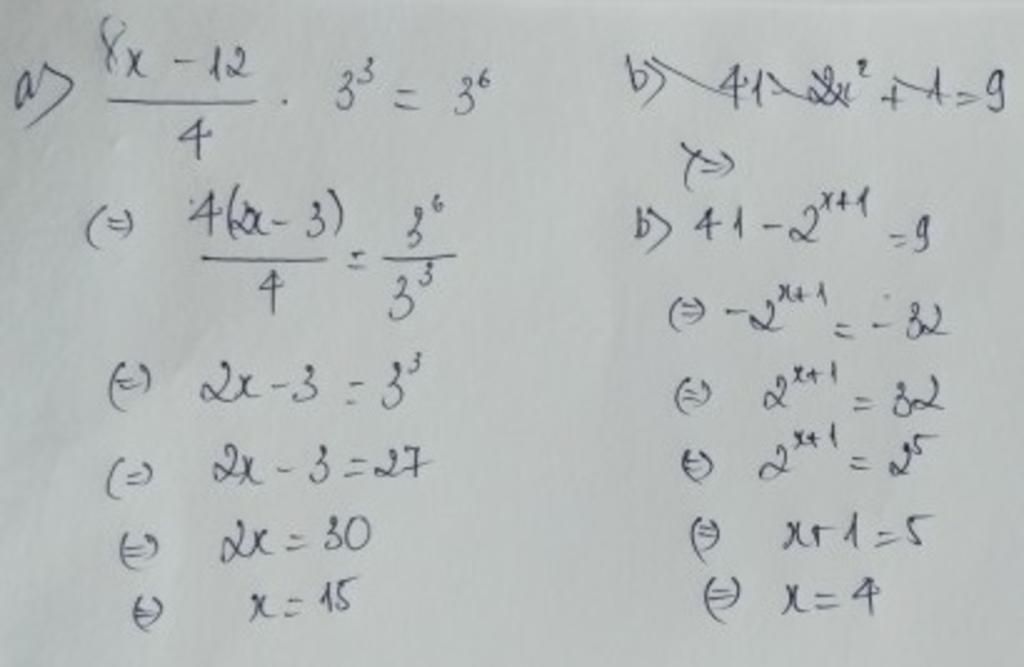 a) (8x - 12)/4 . 3³ = 3⁶
(=) 4(2x - 3)/4 = 3⁶/3³
(=) 2x - 3 = 3³
(=) 2x - 3 = 27
(=) 2x = 30
(=) x = 15
b) 41 - 2x² + 1 = 9
(=)
b) 41 - 2ˣ⁺¹ = 9
(=) -2ˣ⁺¹ = -32
(=) 2ˣ⁺¹ = 32
(=) 2ˣ⁺¹ = 2⁵
(=) x + 1 = 5
(=) x = 4